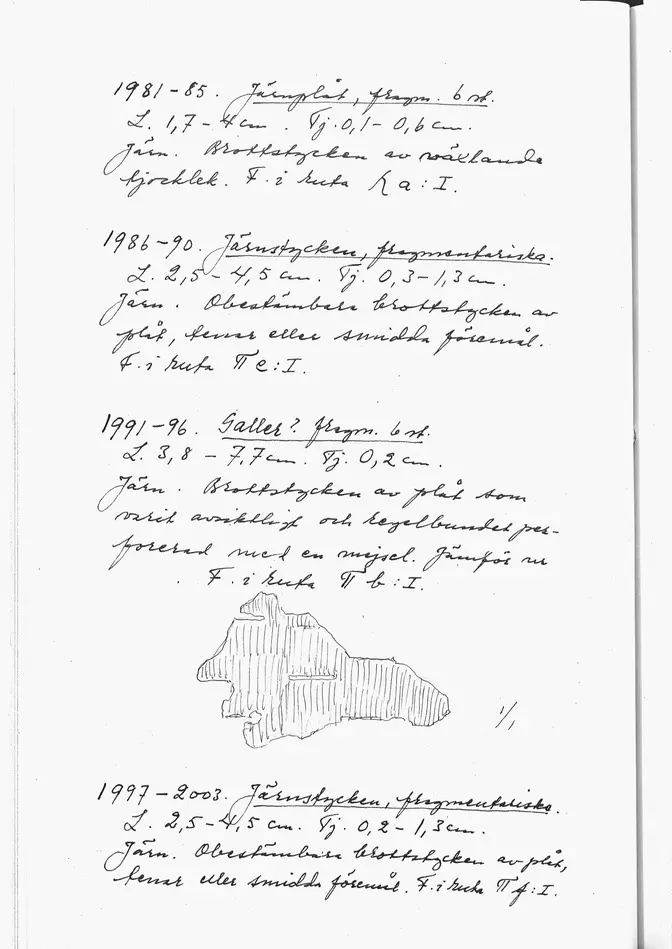 1981-85. Järnplåt, fragm. 6 st.
L. 1,7-4 cm. Tj. 0,1-0,6 cm.
Järn. Brottstycken av växlande
tjocklek. F. i ruta a:I.
1986-90. Järnstycken, fragmentariska.
L. 2,5-4,5 cm. Tj. 0,3-1,3 cm.
Järn. Obestämbara brottstycken av
plåt, tenar eller smidda föremål.
F. i ruta Π e:I.
1991-96. Galler? fragm. 6 st.
L. 3,8 - 7,7 cm. Tj. 0,2 cm.
Järn. Brottstycken av plåt som
varit avsiktligt och regelbundet per-
forerad med en mejsel. Jämför nr
F. i ruta Π b:I.
1/1
1997-2003. Järnstycken, fragmentariska.
L. 2,5-4,5 cm. Tj. 0,2-1,3 cm.
Järn. Obestämbara brottstycken av plåt,
tenar eller smidda föremål. F. i ruta Π f:I.